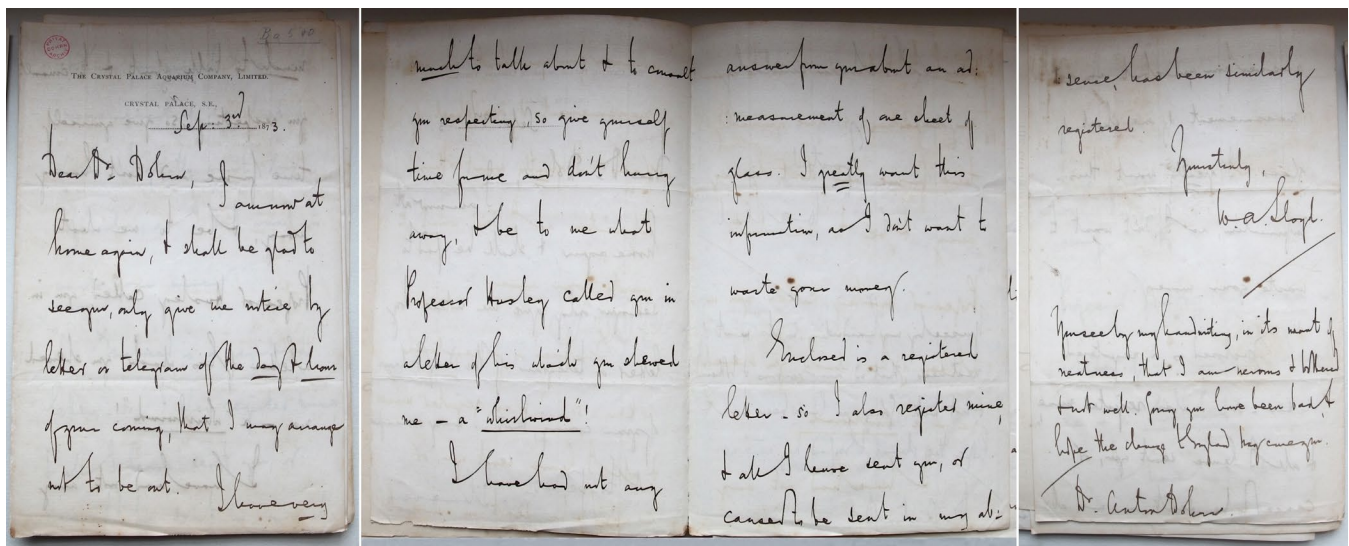 Ba 500
THE CRYSTAL PALACE AQUARIUM COMPANY, LIMITED.
CRYSTAL PALACE, S.E.,
Sep: 3rd 1873.
Dear Dr. Dohrn,
I am now at
home again, & shall be glad to
see you, only give me notice by
letter or telegram of the day & hour
of your coming, that I may arrange
not to be out. I have very
much to talk about & to consult
you respecting, so give yourself
time for me and don't hurry
away, & be to me what
Professor Huxley called you in
a letter of his which you shewed
me – a "whirlwind"!
I have had not any
answer from you about an ad:
:measurement of one sheet of
glass. I greatly want this
information, as I don't want to
waste your money.
Enclosed is a registered
letter – so I also registed mine,
& all I have sent you, or
caused to be sent in my ab:
sence, has been similarly
registered.
Yours truly,
W. A. Lloyd.
You see by my handwriting, in its want of
neatness, that I am nervous & bothered
& not well. Sorry you have been bad, &
hope the change to England may cure you.
Dr. Anton Dohrn.